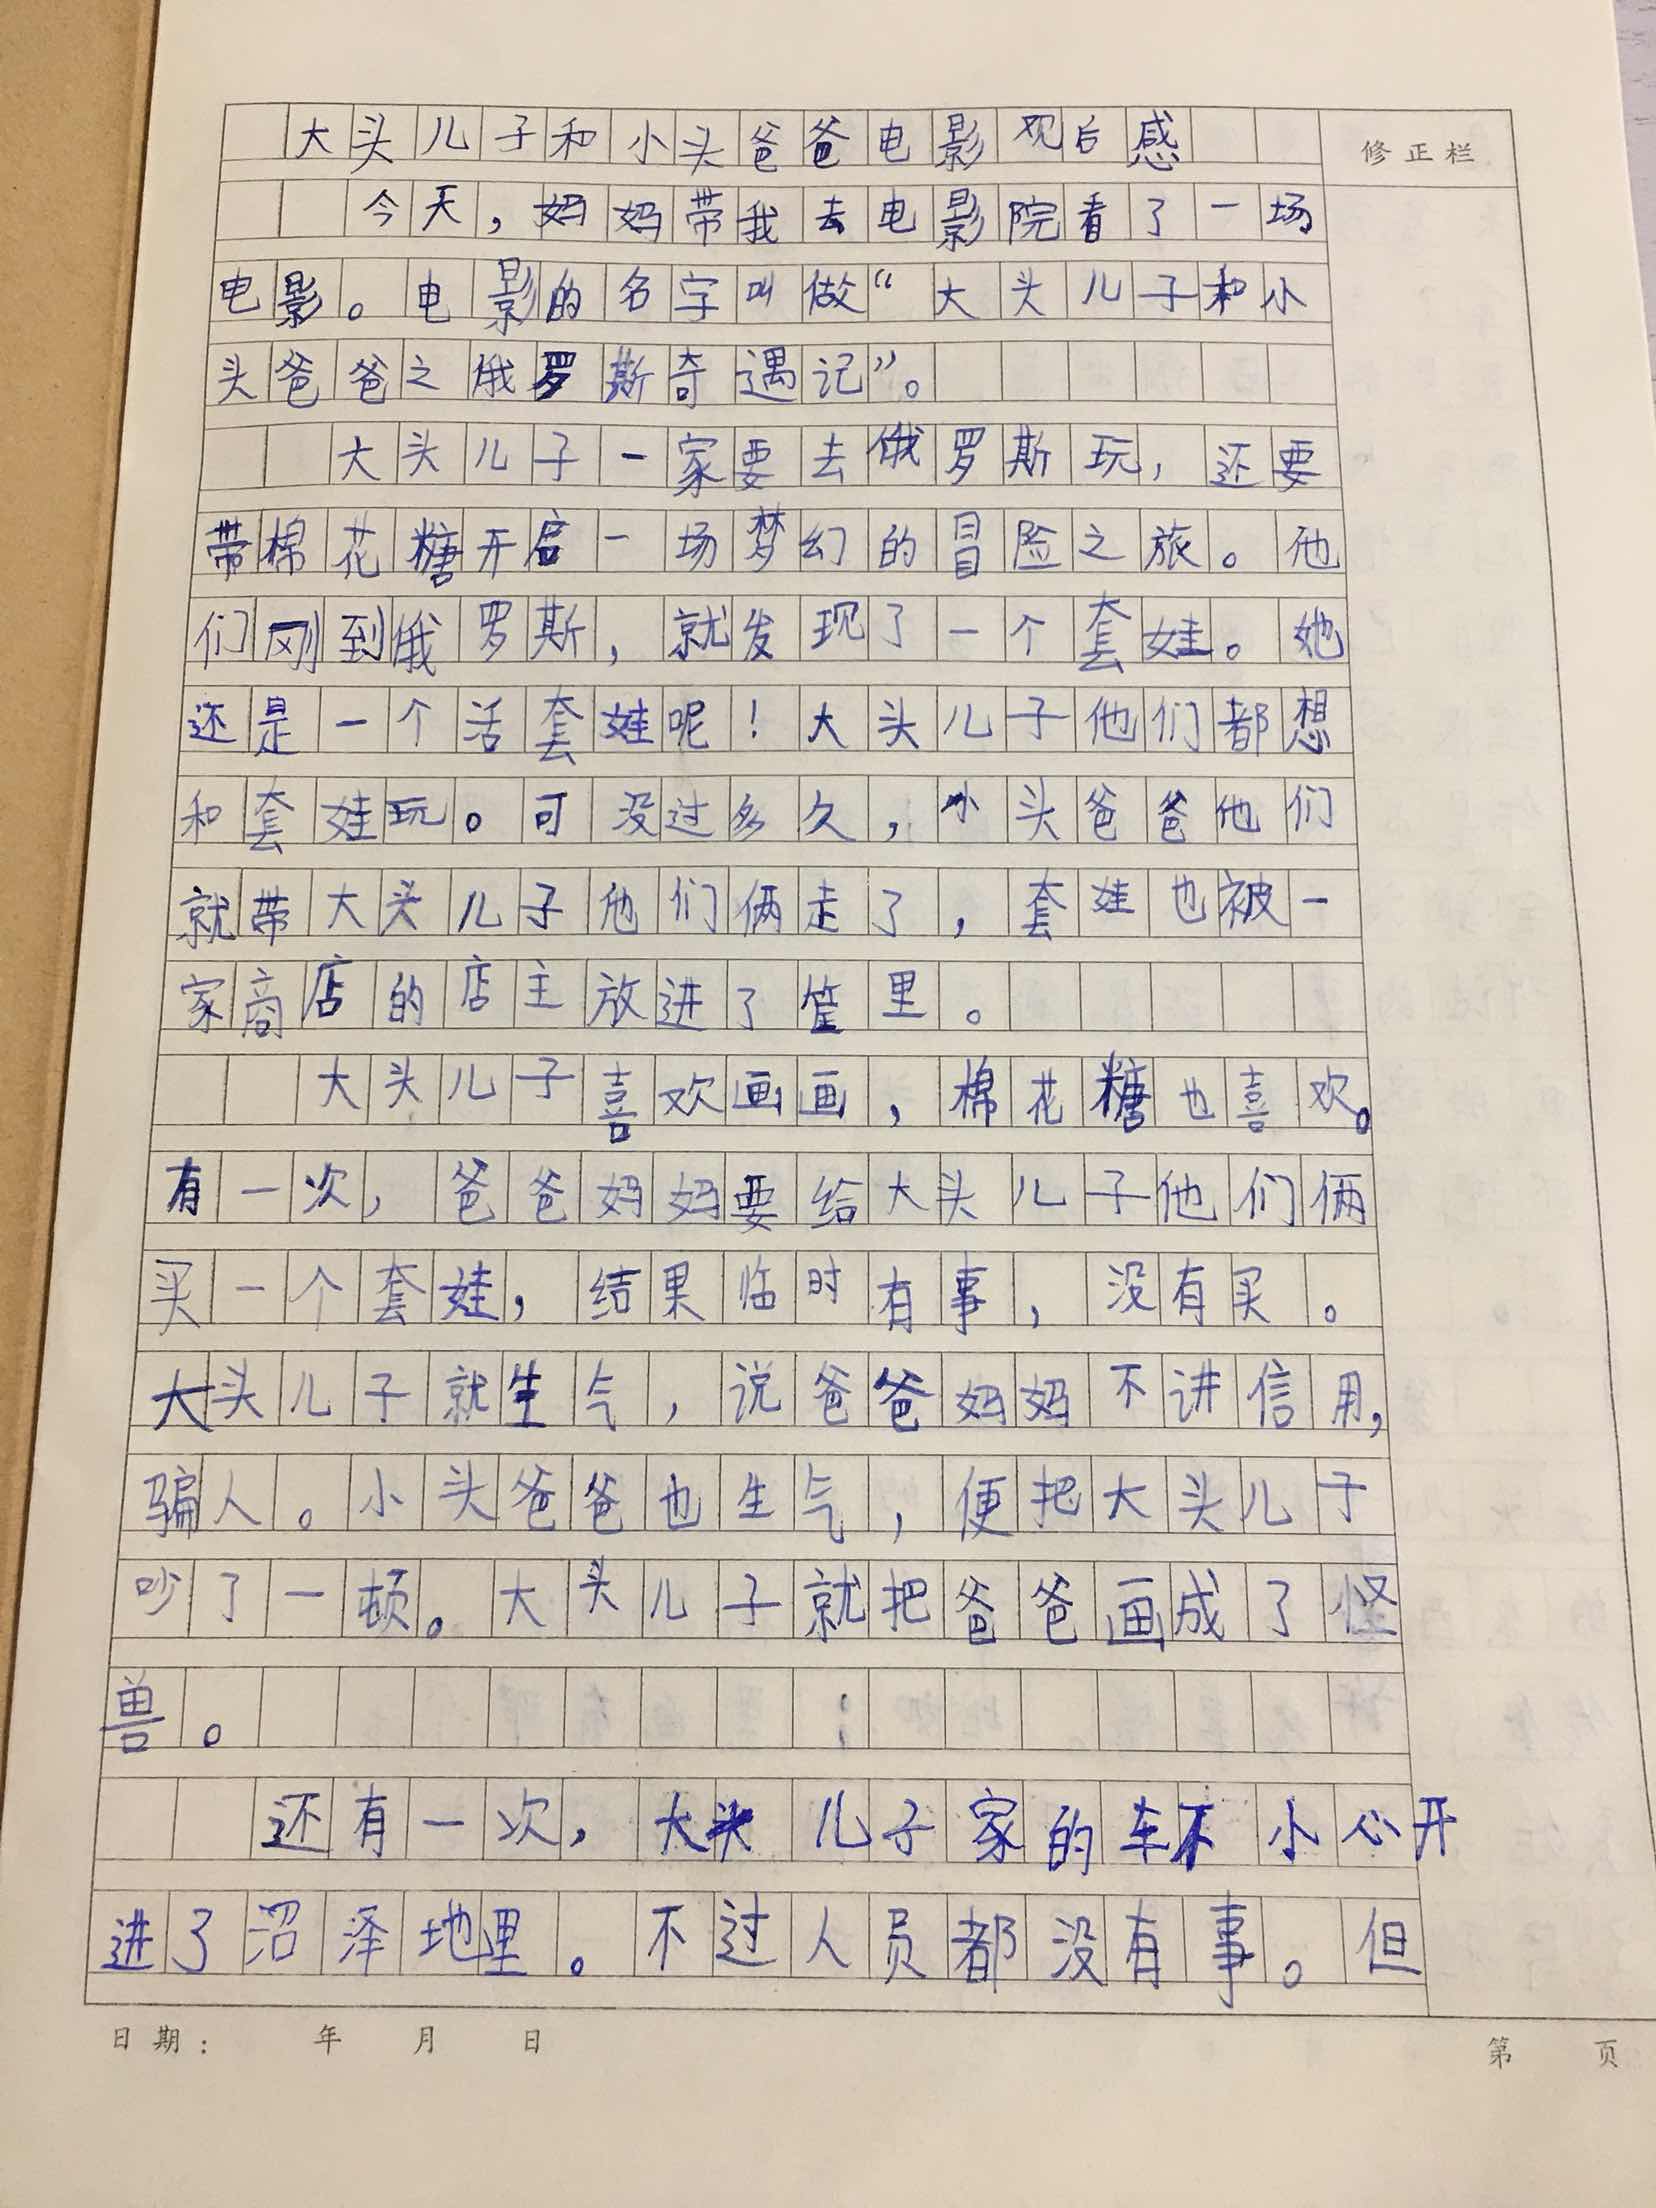 大头儿子和小头爸爸电影观后感
修正栏
今天，妈妈带我去电影院看了一场
电影。电影的名字叫做“大头儿子和小
头爸爸之俄罗斯奇遇记”。
大头儿子一家要去俄罗斯玩，还要
带棉花糖开启一场梦幻的冒险之旅。他
们刚到俄罗斯，就发现了一个套娃。她
还是一个活套娃呢！大头儿子他们都想
和套娃玩。可没过多久，小头爸爸他们
就带大头儿子他们俩走了，套娃也被一
家商店的店主放进了筐里。
大头儿子喜欢画画，棉花糖也喜欢。
有一次，爸爸妈妈要给大头儿子他们俩
买一个套娃，结果临时有事，没有买。
大头儿子就生气，说爸爸妈妈不讲信用，
骗人。小头爸爸也生气，便把大头儿子
吵了一顿。大头儿子就把爸爸画成了怪
兽。
还有一次，大头儿子家的车不小心开
进了沼泽地里。不过人员都没有事。但
日期： 年 月 日
第 页